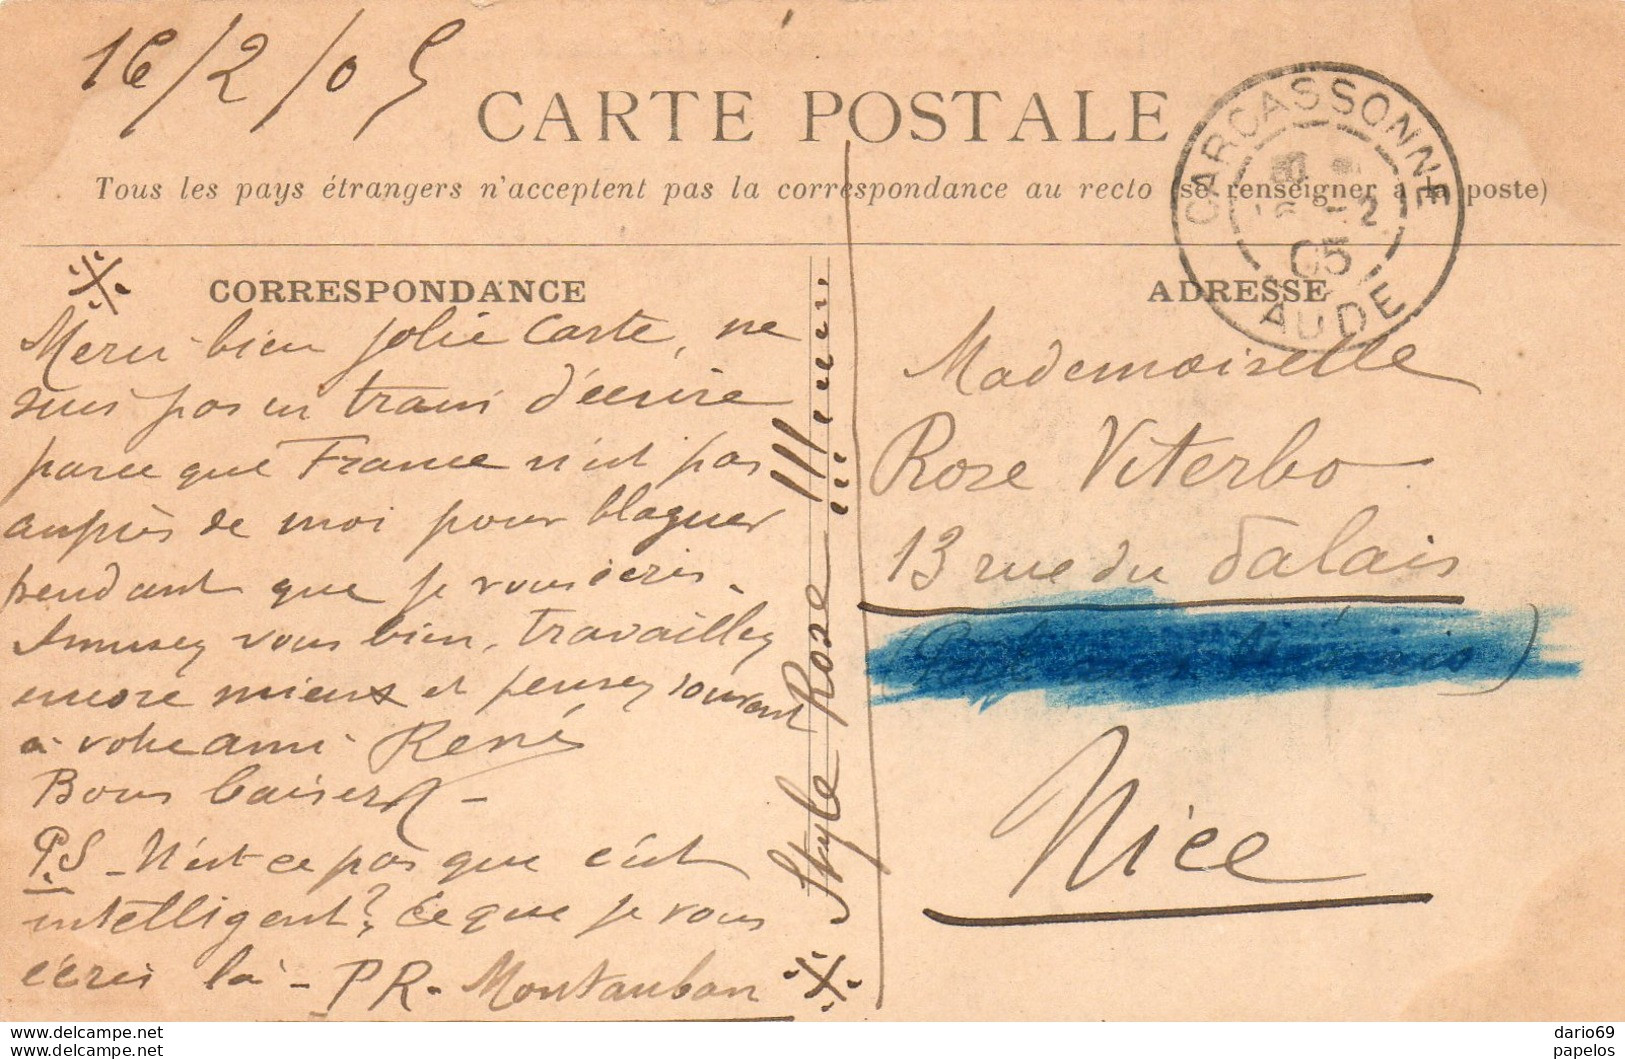 16/2/05
CARTE POSTALE
Tous les pays étrangers n'acceptent pas la correspondance au recto (se renseigner à la poste)
CARCASSONNE
16 -2
05
AUDE
CORRESPONDANCE
Merci bien jolie carte, ne
suis pas en train d'écrire
parce que France n'est pas
auprès de moi pour blaguer
pendant que je vous écris.
Amusez vous bien, travaillez
encore mieux et pensez souvent
à votre ami René
Bons baisers
P.S - N'est ce pas que c'est
intelligent? Ce que je vous
écris là - PR. Montauban
Style Rose !!!
ADRESSE
Mademoiselle
Rose Viterbo
13 rue du Palais
Nice
dario69
www.delcampe.net
papelos
www.delcampe.net